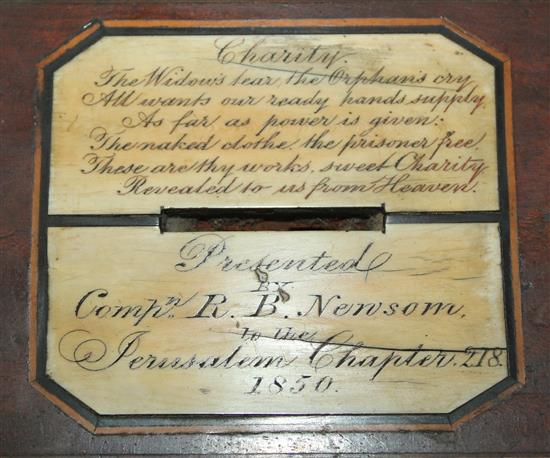 Charity.
The Widow's tear, the Orphan's cry
All wants our ready hands supply.
As far as power is given;
The naked clothe, the prisoner free,
These are thy works, sweet Charity,
Revealed to us from Heaven.
Presented
BY
Compn. R. B. Newsom,
to the
Jerusalem Chapter. 218.
1850.